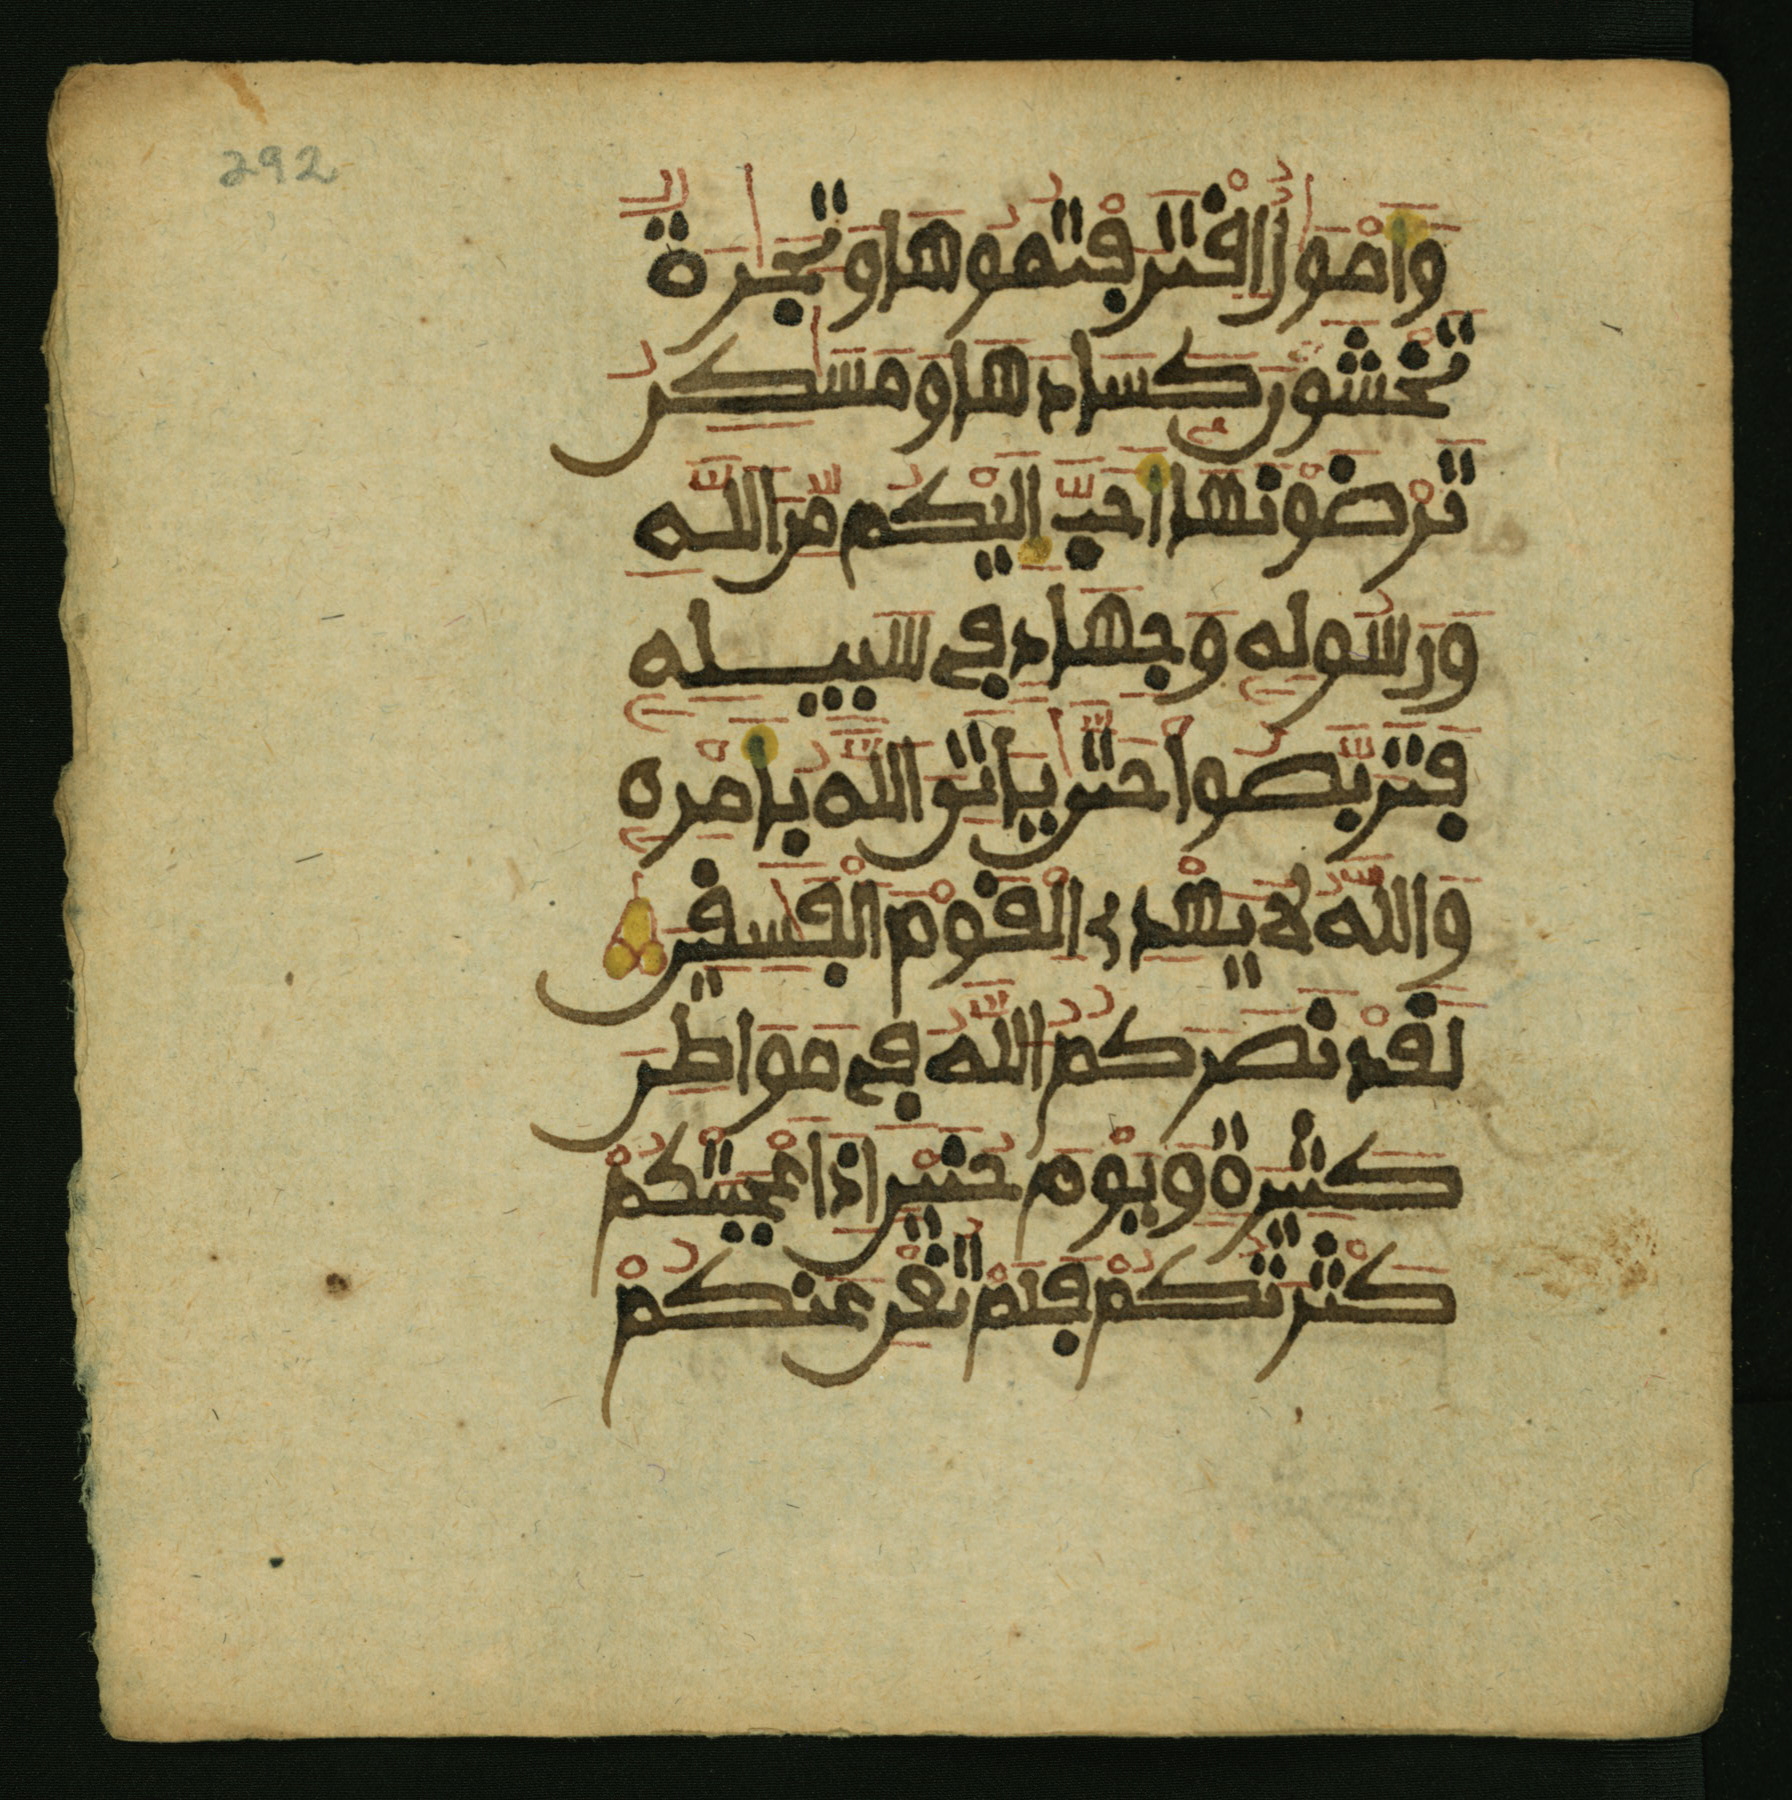 292
وَأَمْوَٰلٌ اقْتَرَفْتُمُوهَا وَتِجَٰرَةٌ
تَخْشَوْنَ كَسَادَهَا وَمَسَٰكِنُ
تَرْضَوْنَهَا أَحَبَّ إِلَيْكُم مِّنَ اللَّهِ
وَرَسُولِهِ وَجِهَادٍ فِي سَبِيلِهِ
فَتَرَبَّصُوا حَتَّىٰ يَاتِيَ اللَّهُ بِأَمْرِهِ
وَاللَّهُ لَا يَهْدِي الْقَوْمَ الْفَٰسِقِينَ
لَقَدْ نَصَرَكُمُ اللَّهُ فِي مَوَاطِنَ
كَثِيرَةٍ وَيَوْمَ حُنَيْنٍ إِذْ أَعْجَبَتْكُمْ
كَثْرَتُكُمْ فَلَمْ تُغْنِ عَنكُمْ